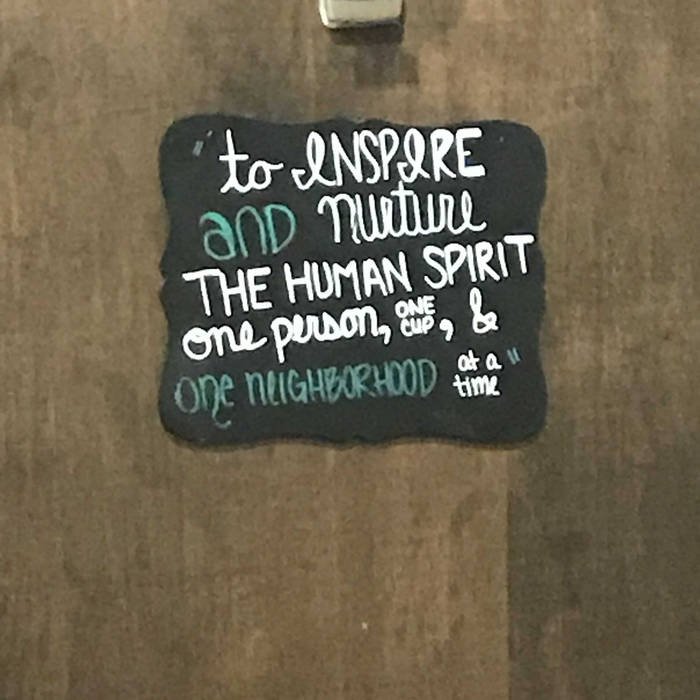 "to INSPIRE
and nurture
THE HUMAN SPIRIT
one person, ONE CUP, &
one NEIGHBORHOOD at a time"